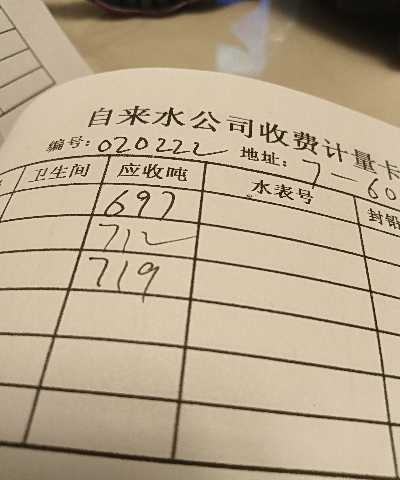 自来水公司收费计量卡
编号:020222 地址:7-60
卫生间 应收吨 水表号 封铅
697
712
719